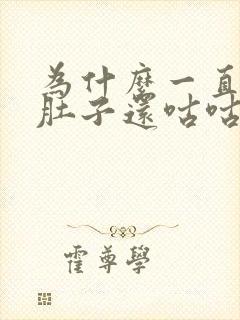 為什麼一直
肚子還咕咕
霍尊學